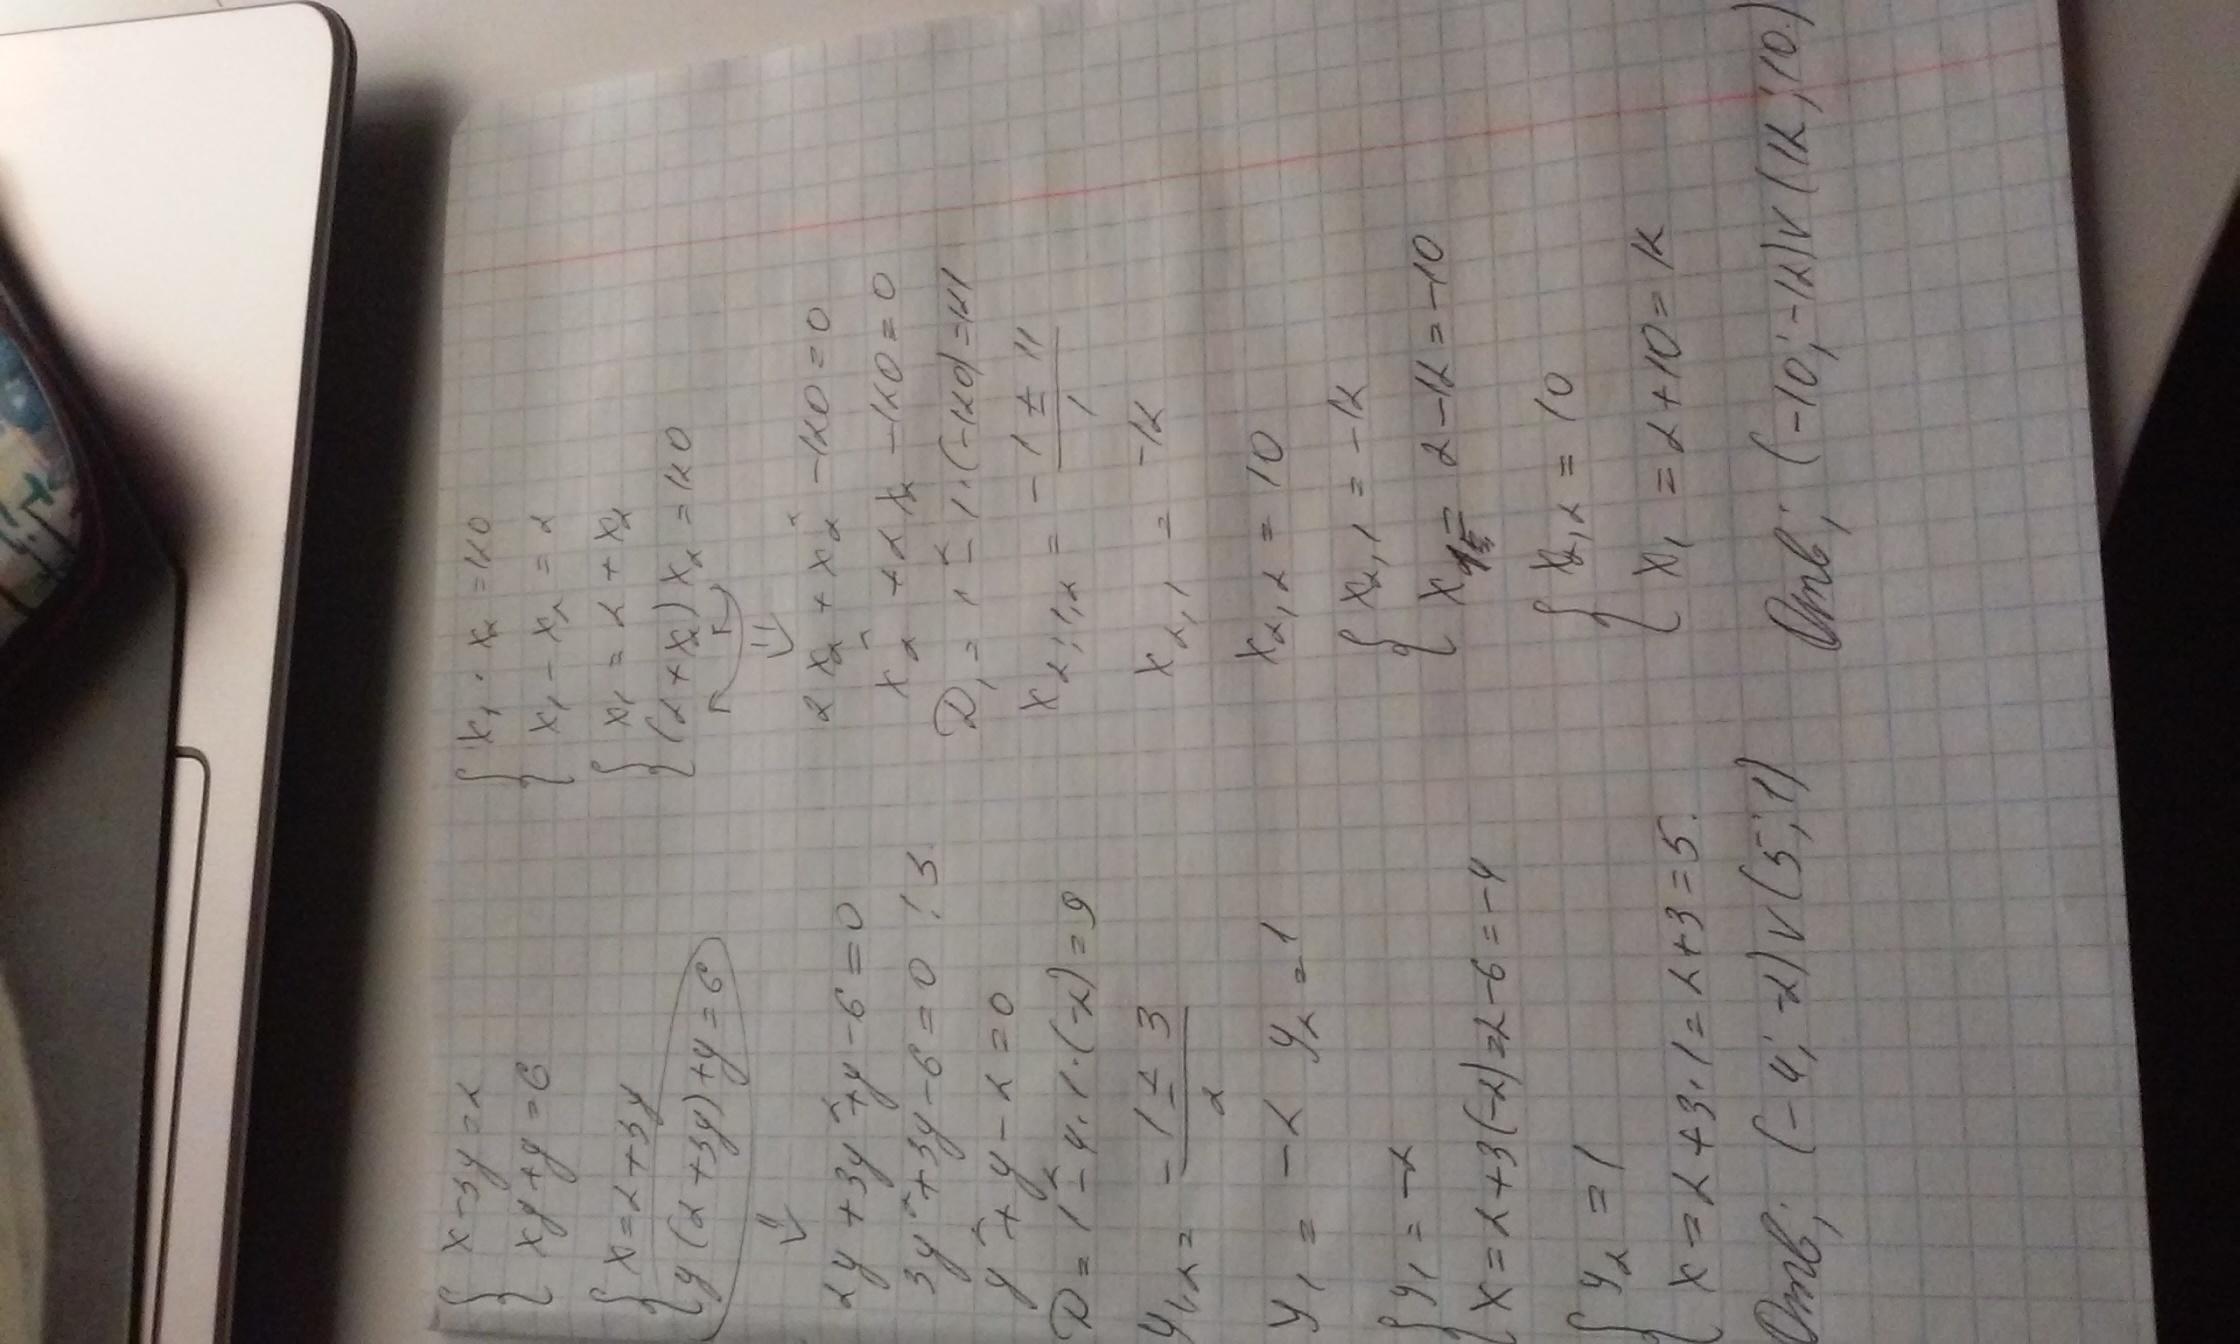 { x - 3y = 2
{ xy + y = 6
{ x = 2 + 3y
{ y(2 + 3y) + y = 6
⇓
2y + 3y² + y - 6 = 0
3y² + 3y - 6 = 0 : 3
y² + y - 2 = 0
D = 1² - 4 · 1 · (-2) = 9
y₁,₂ = (-1 ± 3)/2
y₁ = -2 y₂ = 1
{ y₁ = -2
{ x = 2 + 3(-2) = 2 - 6 = -4
{ y₂ = 1
{ x = 2 + 3 · 1 = 2 + 3 = 5.
Отв; (-4; -2) v (5; 1)
{ x₁ · x₂ = 120
{ x₁ - x₂ = 2
{ x₁ = 2 + x₂
{ (2 + x₂) x₂ = 120
⇓
2x₂ + x₂² - 120 = 0
x₂² + 2x₂ - 120 = 0
D₁ = 1² - 1 · (-120) = 121
x₂;₁,₂ = (-1 ± 11)/1
x₂,₁ = -12
x₂,₂ = 10
{ x₂,₁ = -12
{ x₁ = 2 - 12 = -10
{ x₂,₂ = 10
{ x₁ = 2 + 10 = 12
Отв; (-10; -12) v (12; 10.)